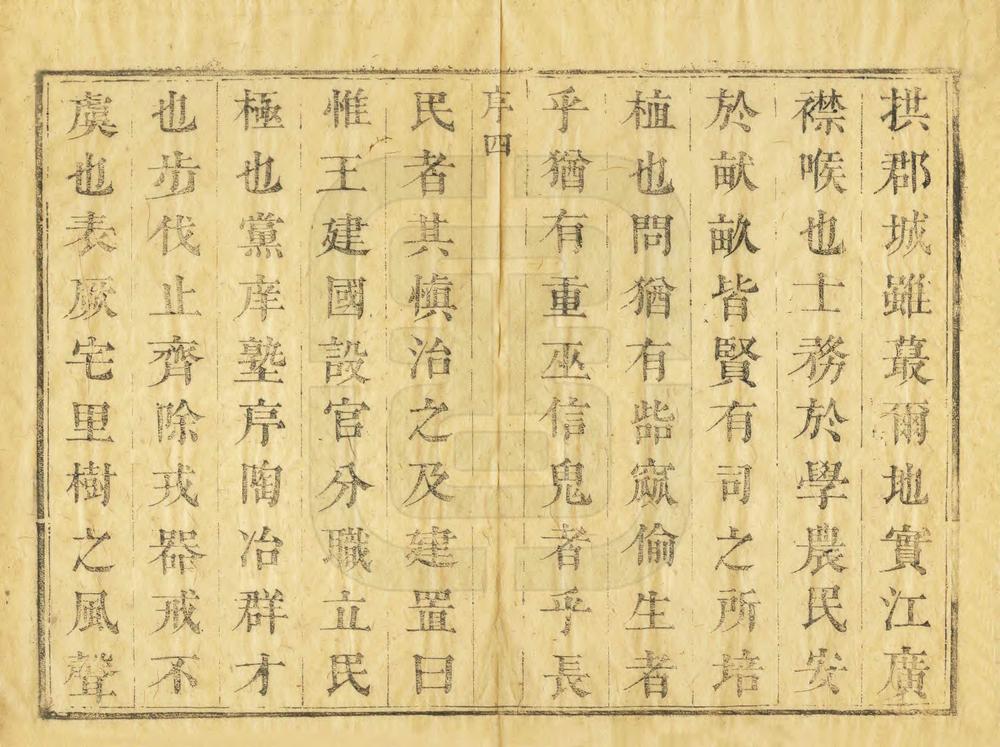 拱郡城雖蕞爾地實江廣
襟喉也士務於學農民安
於畎畝皆賢有司之所培
植也問猶有啙窳偷生者
乎猶有重巫信鬼者乎長
序四
民者其慎治之及建置曰
惟王建國設官分職立民
極也黨庠塾序陶冶群才
也步伐止齊除戎器戒不
虞也表厥宅里樹之風聲